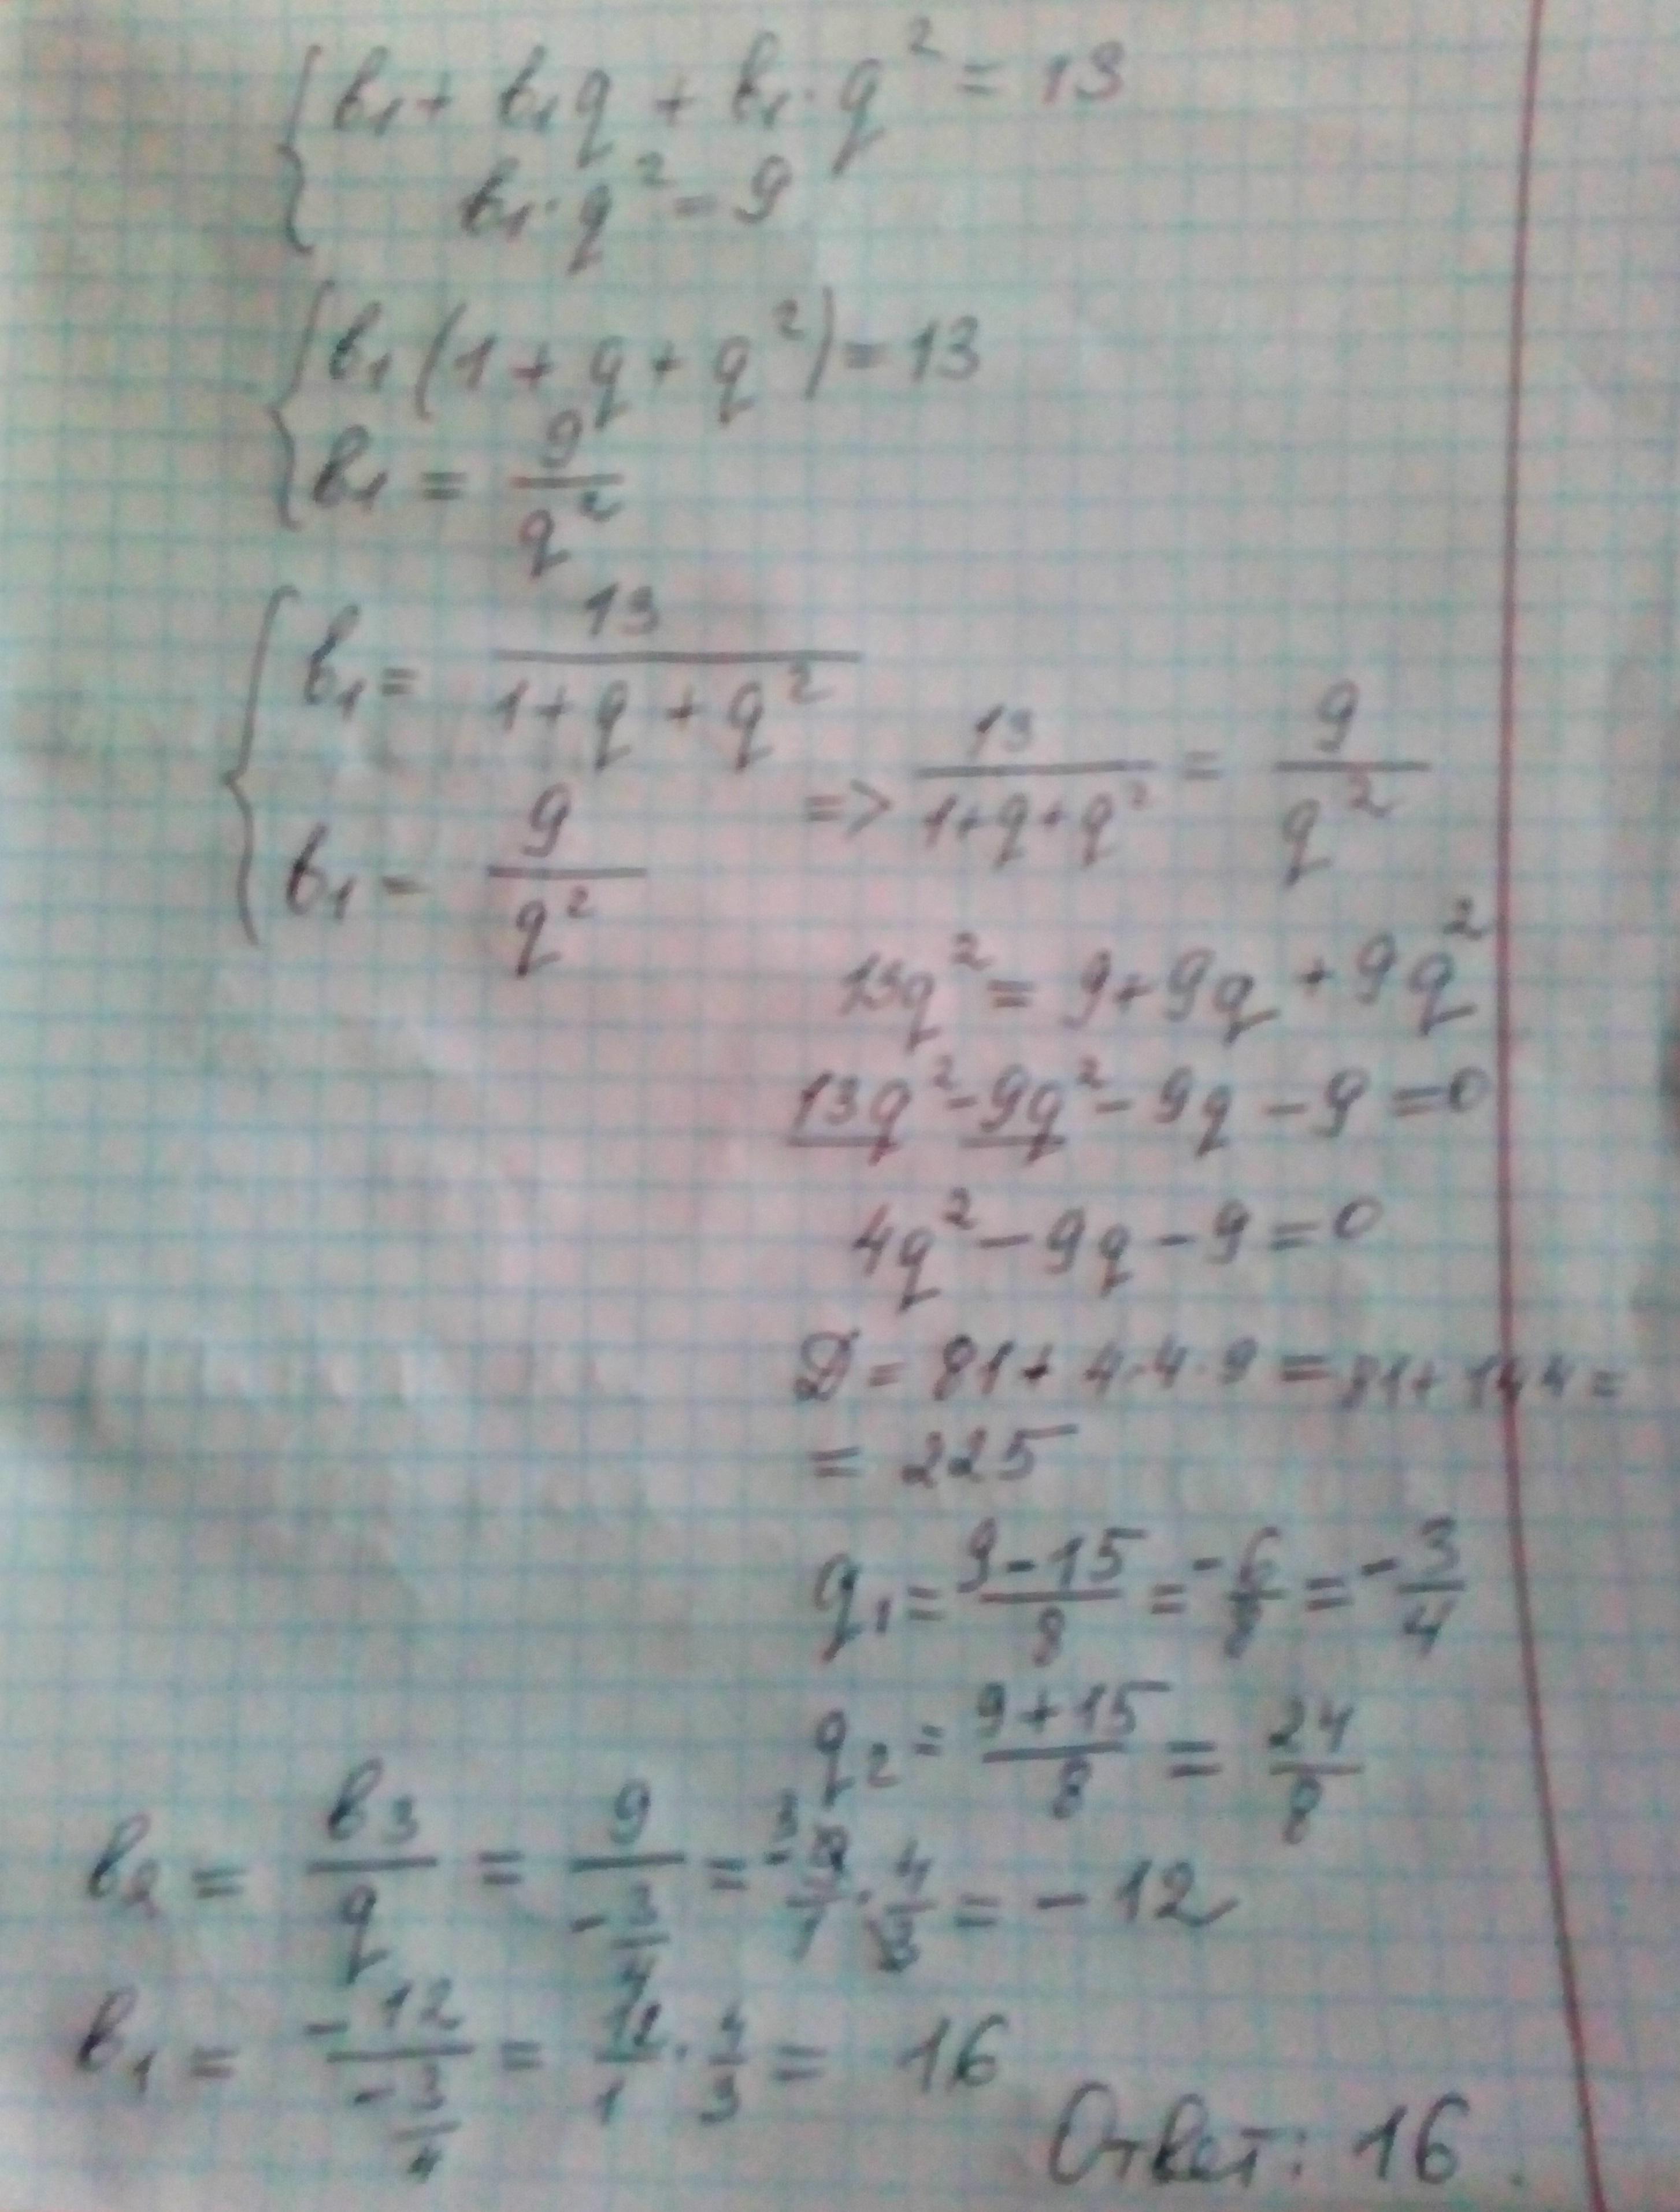 { b₁ + b₁q + b₁·q² = 13
b₁·q² = 9
{ b₁(1 + q + q²) = 13
b₁ = 9/q²
{ b₁ = 13/(1 + q + q²)
b₁ = 9/q² => 13/(1+q+q²) = 9/q²
13q² = 9 + 9q + 9q²
13q² - 9q² - 9q - 9 = 0
4q² - 9q - 9 = 0
D = 81 + 4·4·9 = 81 + 144 =
= 225
q₁ = (9-15)/8 = -6/8 = -3/4
q₂ = (9+15)/8 = 24/8
b₂ = b₃/q = 9/(-3/4) = -9/1 · 4/3 = -12
b₁ = -12/(-3/4) = 12/1 · 4/3 = 16
Ответ: 16.